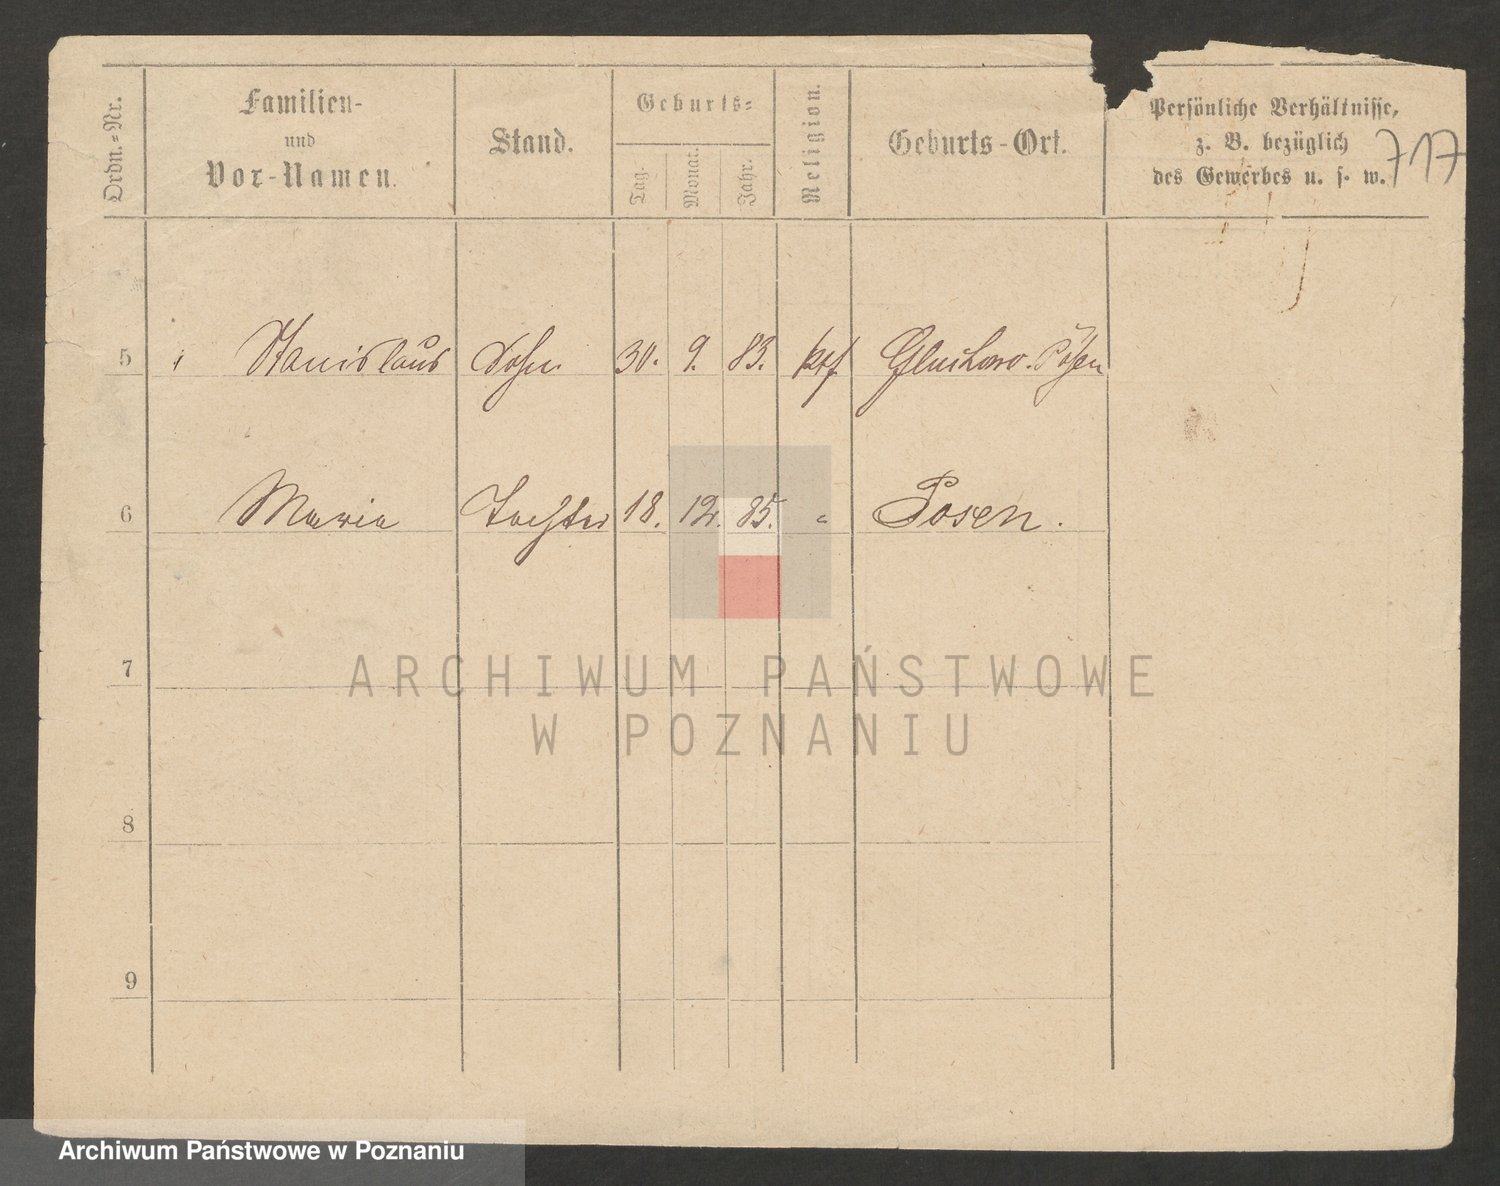 Ordn.-Nr.
Familien-
und
Vor-Namen.
Stand.
Geburts-
Tag.
Monat.
Jahr.
Religion.
Geburts-Ort.
Persönliche Verhältnisse,
z. B. bezüglich
des Gewerbes u. s. w.
717
5 Stanislaus Sohn 30. 9. 83. Gluchowo. Posen
6 Maria Tochter 18. 12. 85. " Posen.
7
ARCHIWUM PAŃSTWOWE
W POZNANIU
8
9
Archiwum Państwowe w Poznaniu